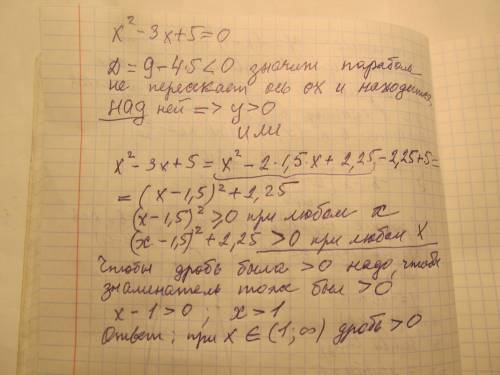 x² - 3x + 5 = 0
Д = 9 - 4·5 < 0 значит парабол
не пересекает ось ox и находится
НАД ней => y > 0
или
x² - 3x + 5 = x² - 2·1,5·x + 2,25 - 2,25 + 5 =
= (x - 1,5)² + 2,25
(x - 1,5)² ≥ 0 при любом x
(x - 1,5)² + 2,25 > 0 при любом x
Чтобы дробь была > 0 надо, чтобы
знаминатель тоже был > 0
x - 1 > 0 ; x > 1
Ответ: при x ∈ (1; ∞) дробь > 0